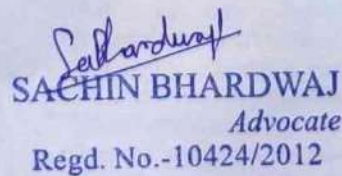 SACHIN BHARDWAJ
Advocate
Regd. No.-10424/2012